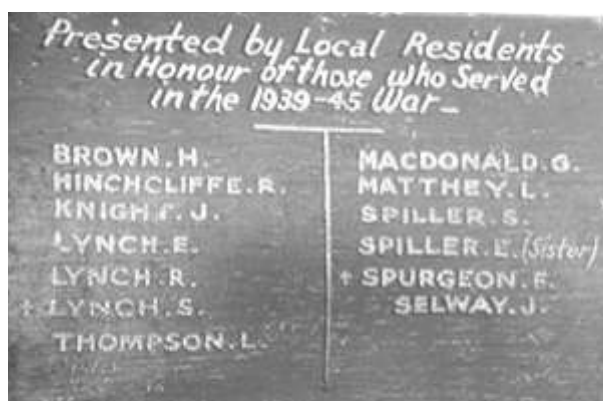 Presented by Local Residents
in Honour of those who Served
in the 1939-45 War_
BROWN.H.
HINCHCLIFFE.R.
KNIGHT.J.
LYNCH.E.
LYNCH.R.
+ LYNCH.S.
THOMPSON.L.
MACDONALD.G.
MATTHEY.L.
SPILLER.S.
SPILLER.E.(Sister)
+ SPURGEON.F.
SELWAY.J.